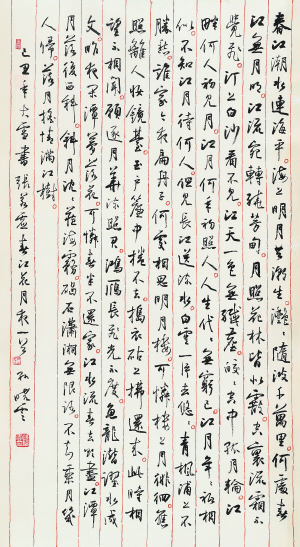 春江潮水連海平海上明月共潮生灩灩隨波千萬里何處春
江無月明江流宛轉繞芳甸月照花林皆似霰空裏流霜不
覺飛汀上白沙看不見江天一色無纖塵皎皎空中孤月輪江
畔何人初見月江月何年初照人人生代代無窮已江月年年祇相
似不知江月待何人但見長江送流水白雲一片去悠悠青楓浦上不
勝愁誰家今夜扁舟子何處相思明月樓可憐樓上月徘徊應
照離人妝鏡臺玉戶簾中捲不去搗衣砧上拂還來此時相
望不相聞願逐月華流照君鴻雁長飛光不度魚龍潛躍水成
文昨夜閑潭夢落花可憐春半不還家江水流春去欲盡江潭
月落復西斜斜月沈沈藏海霧碣石瀟湘無限路不知乘月幾
人歸落月搖情滿江樹
己丑年大雪書張若虛春江花月夜一首孫曉雲